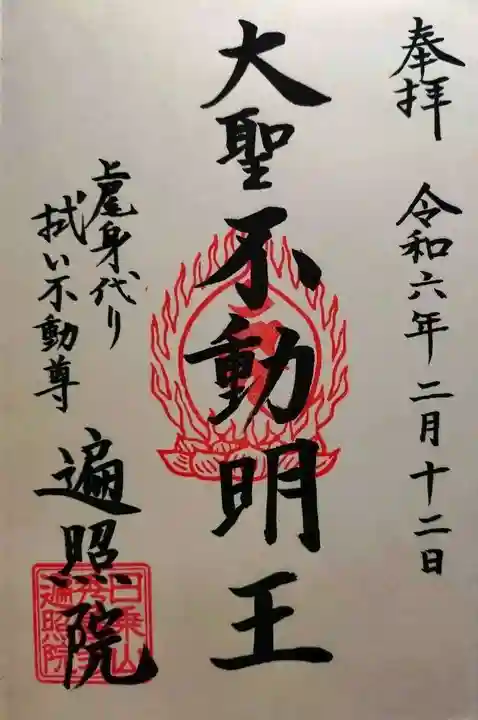 奉拝
令和六年二月十二日
大聖不動明王
上尾身代り
拭い不動尊
遍照院
日乗山
遍照院